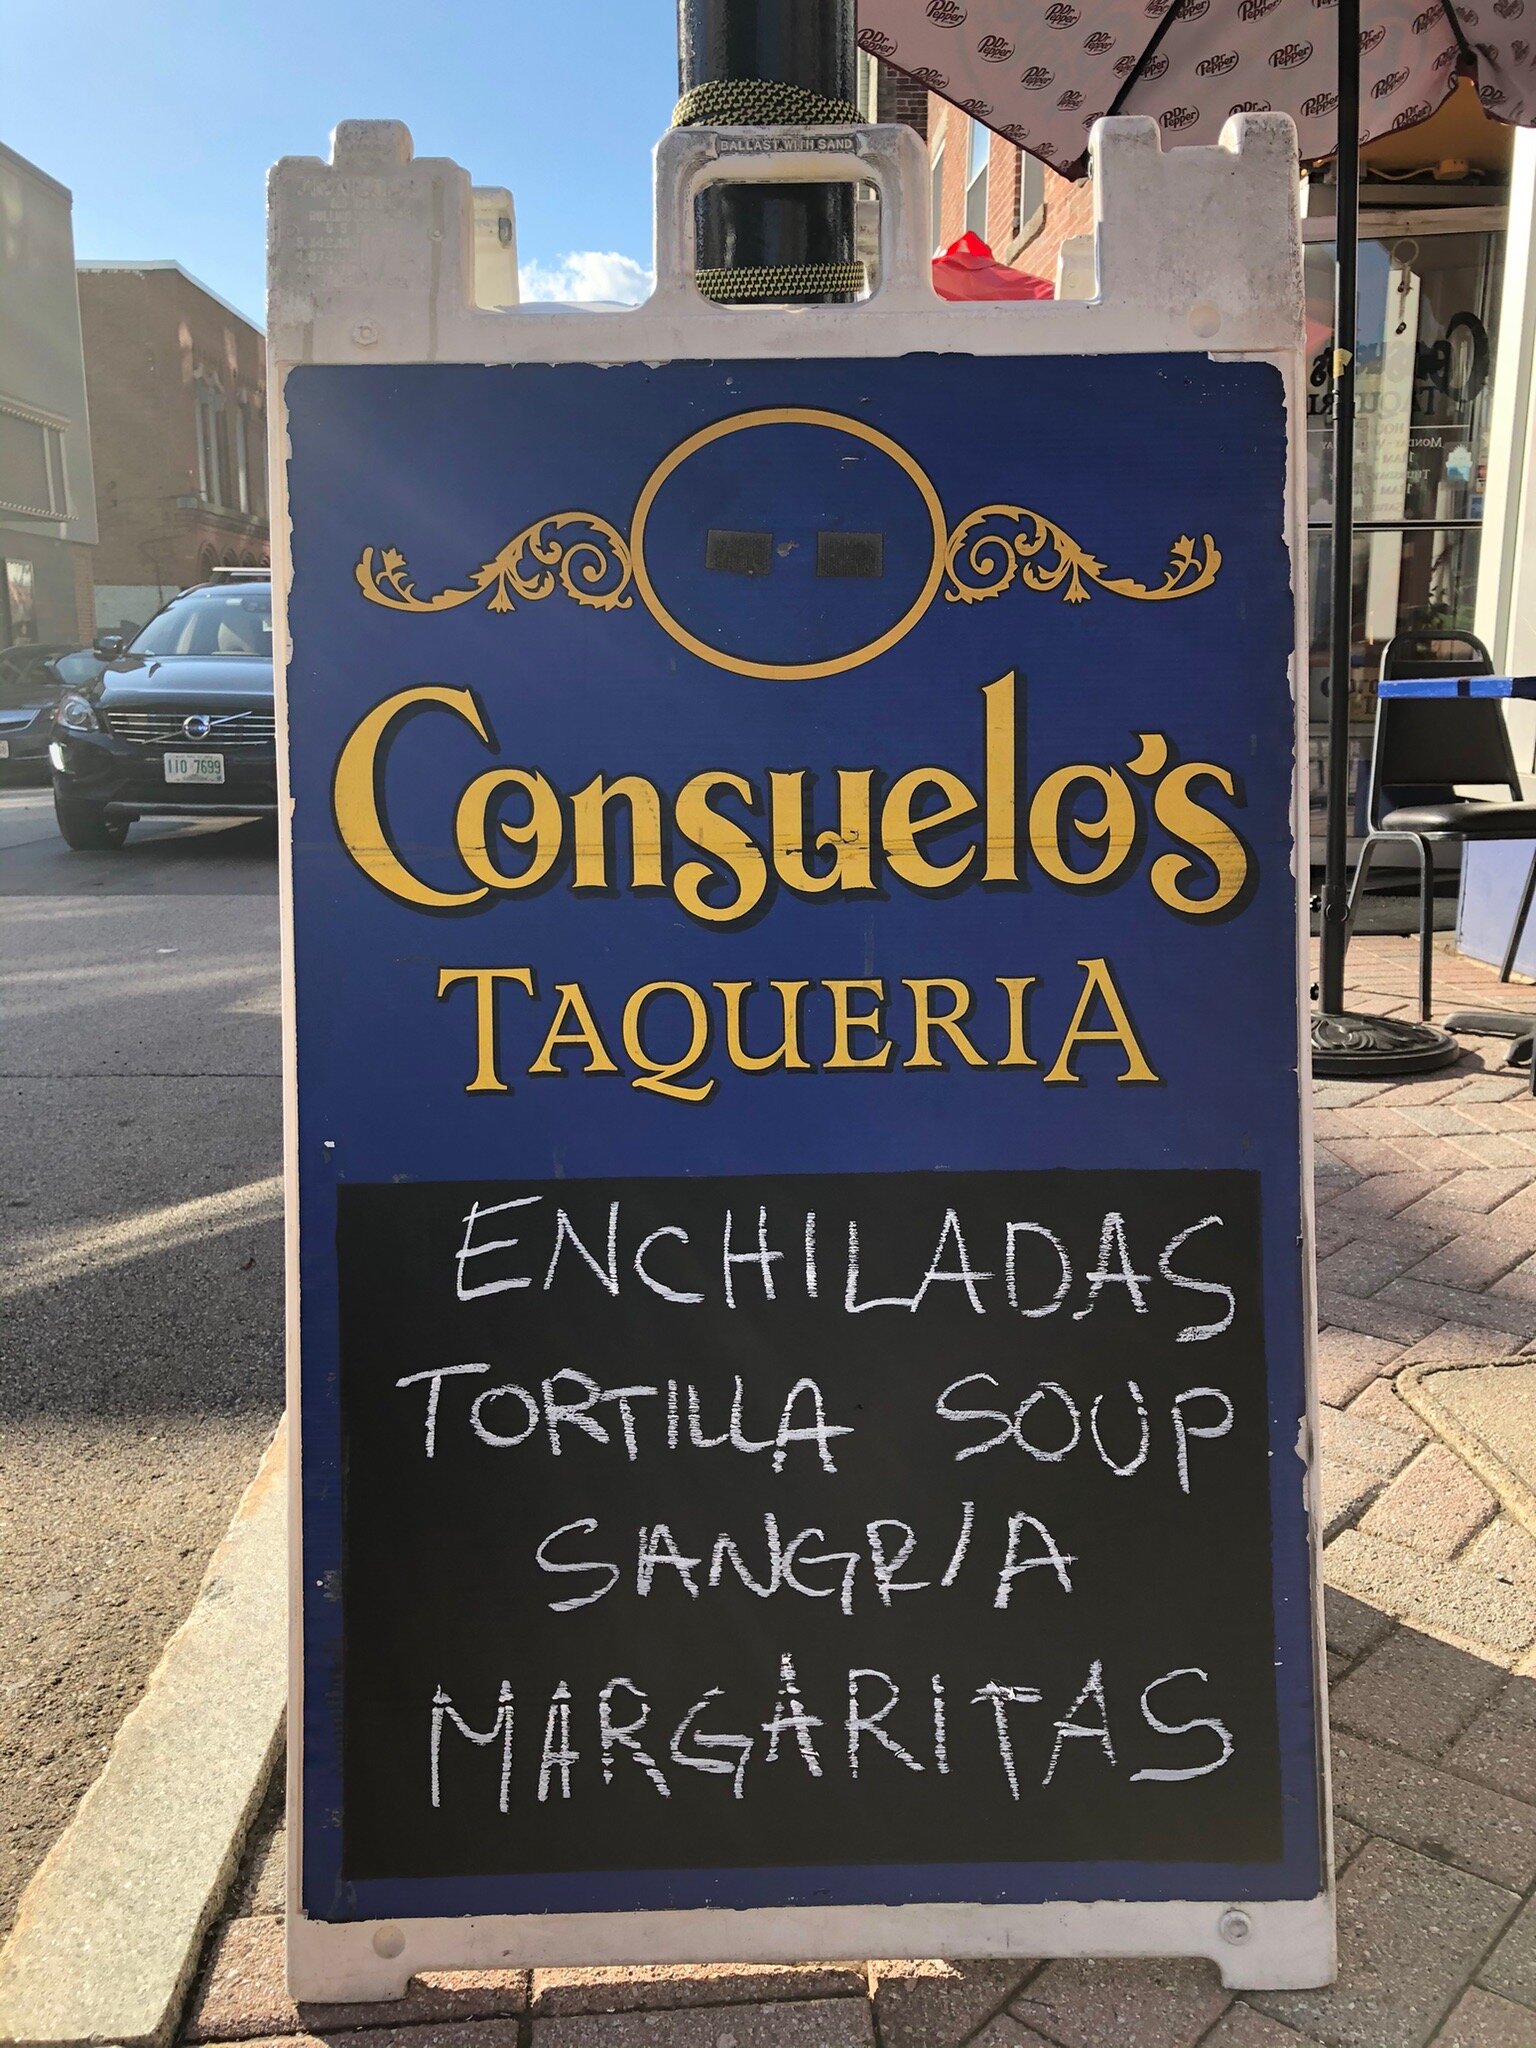 Dr Pepper
BALLAST WITH SAND
Consuelo's
TAQUERIA
ENCHILADAS
TORTILLA SOUP
SANGRIA
MARGARITAS
110 7699